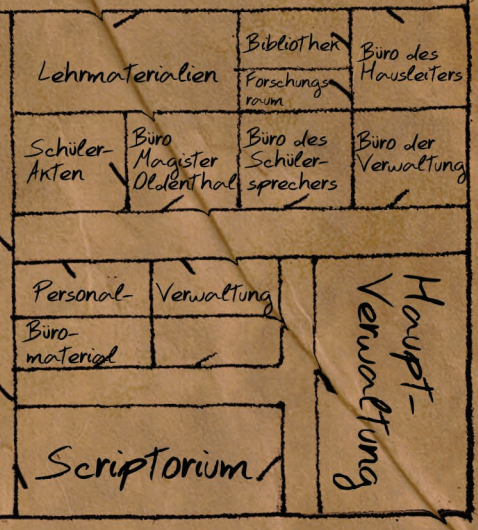 Lehrmaterialien
Bibliothek
Forschungs
raum
Büro des
Hausleiters
Schüler-
Akten
Büro
Magister
Oldenthal
Büro des
Schüler-
sprechers
Büro der
Verwaltung
Personal-
Verwaltung
Büro-
material
Haupt-
Verwaltung
Scriptorium